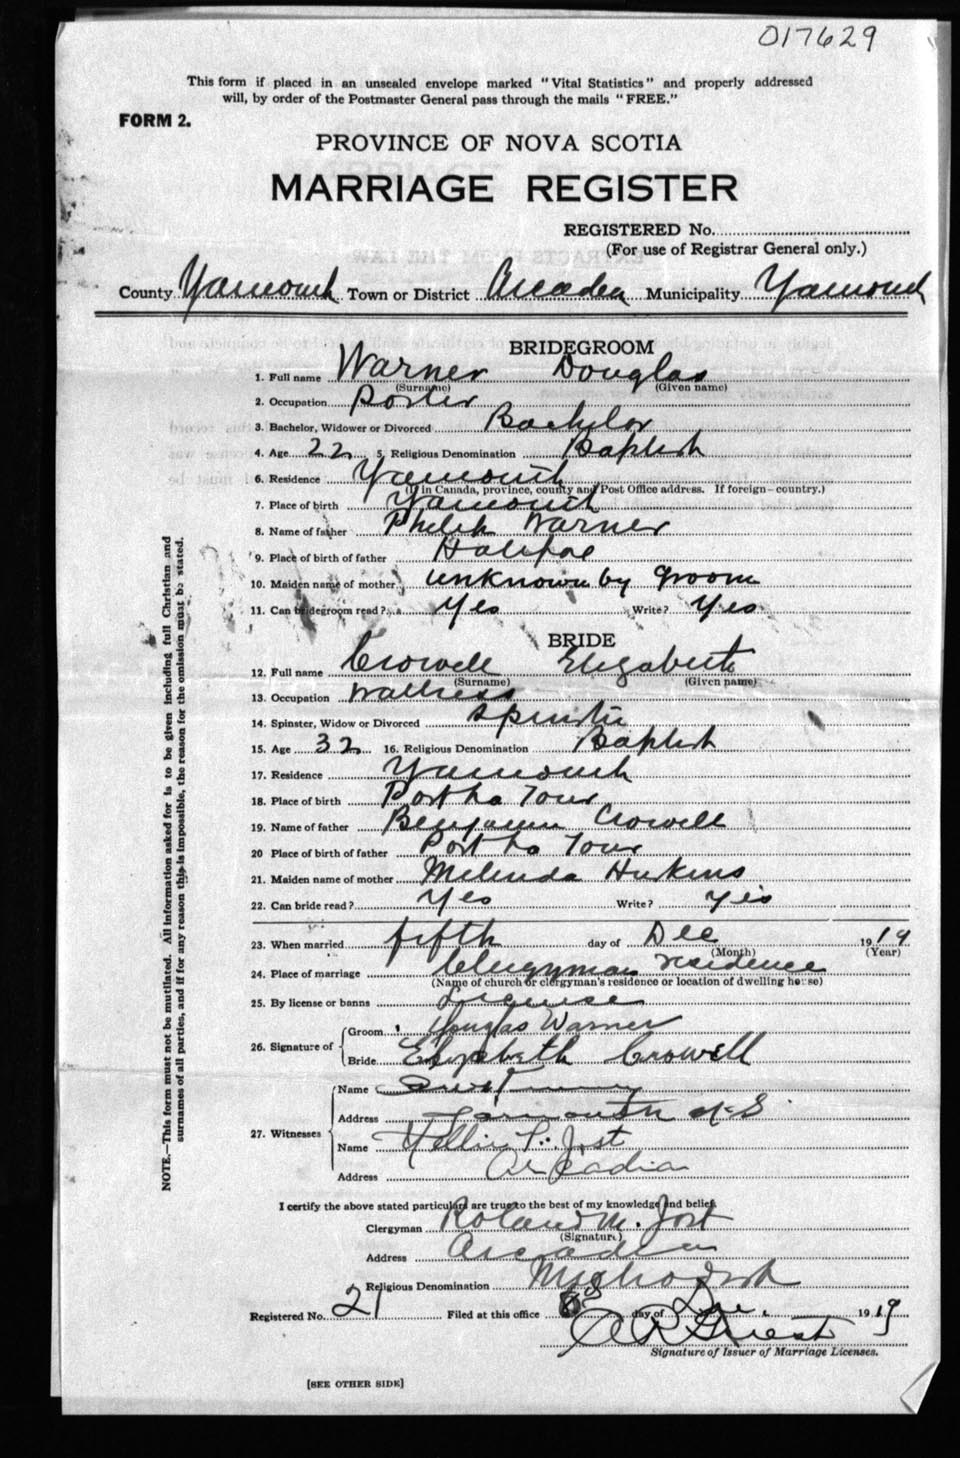 017629
This form if placed in an unsealed envelope marked "Vital Statistics" and properly addressed
will, by order of the Postmaster General pass through the mails "FREE."
FORM 2.
PROVINCE OF NOVA SCOTIA
MARRIAGE REGISTER
REGISTERED No.
(For use of Registrar General only.)
County Yarmouth Town or District Arcadia Municipality Yarmouth
BRIDEGROOM
1. Full name Warner Douglas
(Surname) (Given name)
2. Occupation Porter
3. Bachelor, Widower or Divorced Bachelor
4. Age 22 5. Religious Denomination Baptist
6. Residence Yarmouth
(If in Canada, province, county and Post Office address. If foreign-country.)
7. Place of birth Yarmouth
8. Name of father Philip Warner
9. Place of birth of father Halifax
10. Maiden name of mother unknown by groom
11. Can bridegroom read? Yes Write? Yes
BRIDE
12. Full name Crowell Elizabeth
(Surname) (Given name)
13. Occupation Waitress
14. Spinster, Widow or Divorced Spinster
15. Age 32 16. Religious Denomination Baptist
17. Residence Yarmouth
18. Place of birth Port La Tour
19. Name of father Benjamin Crowell
20 Place of birth of father Port La Tour
21. Maiden name of mother Melinda
22. Can bride read? Yes Write? Yes
23. When married fifth day of Dec 1919
(Month) (Year)
24. Place of marriage Clergyman residence
(Name of church or clergyman's residence or location of dwelling house)
25. By license or banns License
26. Signature of
Groom Douglas Warner
Bride Elizabeth Crowell
27. Witnesses
Name
Address Yarmouth N.S.
Name Nellie P. Jost
Address Arcadia
I certify the above stated particulars are true to the best of my knowledge and belief.
Clergyman Roland M. Jost
(Signature)
Address Arcadia
Religious Denomination Methodist
Registered No. 21 Filed at this office 8 day of Dec. 1919
Signature of Issuer of Marriage Licenses.
[SEE OTHER SIDE]
NOTE.—This form must not be mutilated. All information asked for is to be given including full Christian and
surnames of all parties, and if for any reason this is impossible, the reason for the omission must be stated.